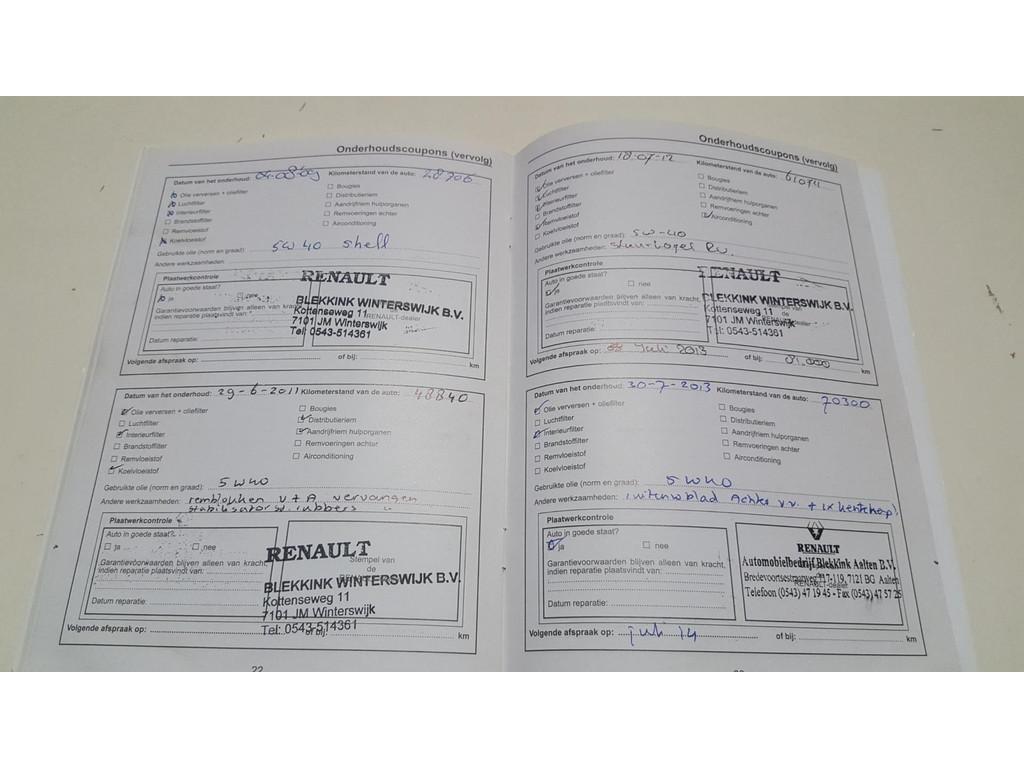 Onderhoudscoupons (vervolg)
Datum van het onderhoud: 04-08-09 Kilometerstand van de auto: 28706
Olie verversen + oliefilter
Luchtfilter
Interieurfilter
Brandstoffilter
Remvloeistof
Koelvloeistof
Bougies
Distributieriem
Aandrijfriem hulporganen
Remvoeringen achter
Airconditioning
Gebruikte olie (norm en graad): 5W40 shell
Andere werkzaamheden:
Plaatwerkcontrole
Auto in goede staat?
ja nee
Garantievoorwaarden blijven alleen van kracht,
indien reparatie plaatsvindt van:
Datum reparatie:
RENAULT
BLEKKINK WINTERSWIJK B.V.
Kottenseweg 11
7101 JM Winterswijk
Tel: 0543-514361
RENAULT-dealer
Volgende afspraak op: of bij: km
Datum van het onderhoud: 29-6-2011 Kilometerstand van de auto: 48840
Olie verversen + oliefilter
Luchtfilter
Interieurfilter
Brandstoffilter
Remvloeistof
Koelvloeistof
Bougies
Distributieriem
Aandrijfriem hulporganen
Remvoeringen achter
Airconditioning
Gebruikte olie (norm en graad): 5W40
Andere werkzaamheden: remblokken V+A vervangen
stabilisator st. rubbers "
Plaatwerkcontrole
Auto in goede staat?
ja nee
Garantievoorwaarden blijven alleen van kracht,
indien reparatie plaatsvindt van:
Datum reparatie:
Stempel van
de
RENAULT
BLEKKINK WINTERSWIJK B.V.
Kottenseweg 11
7101 JM Winterswijk
Tel: 0543-514361
Volgende afspraak op: of bij: km
22
Onderhoudscoupons (vervolg)
Datum van het onderhoud: 18-07-12 Kilometerstand van de auto: 61074
Olie verversen + oliefilter
Luchtfilter
Interieurfilter
Brandstoffilter
Remvloeistof
Koelvloeistof
Bougies
Distributieriem
Aandrijfriem hulporganen
Remvoeringen achter
Airconditioning
Gebruikte olie (norm en graad): 5W-40
Andere werkzaamheden: stuurkogel Rv.
Plaatwerkcontrole
Auto in goede staat?
ja nee
Garantievoorwaarden blijven alleen van kracht,
indien reparatie plaatsvindt van:
Datum reparatie:
RENAULT
BLEKKINK WINTERSWIJK B.V.
Kottenseweg 11
7101 JM Winterswijk
Tel: 0543-514361
Volgende afspraak op: Juli 2013 of bij: 81.000 km
Datum van het onderhoud: 30-7-2013 Kilometerstand van de auto: 70300
Olie verversen + oliefilter
Luchtfilter
Interieurfilter
Brandstoffilter
Remvloeistof
Koelvloeistof
Bougies
Distributieriem
Aandrijfriem hulporganen
Remvoeringen achter
Airconditioning
Gebruikte olie (norm en graad): 5W40
Andere werkzaamheden: ruitenwblad Achter v.v. + 1x
Plaatwerkcontrole
Auto in goede staat?
ja nee
Garantievoorwaarden blijven alleen van kracht,
indien reparatie plaatsvindt van:
Datum reparatie:
RENAULT
Automobielbedrijf Blekkink Aalten B.V.
Bredevoortsestraatweg 117-119, 7121 BG Aalten
Telefoon (0543) 47 19 45 - Fax (0543) 47 57 25
Volgende afspraak op: juli 14 of bij: km